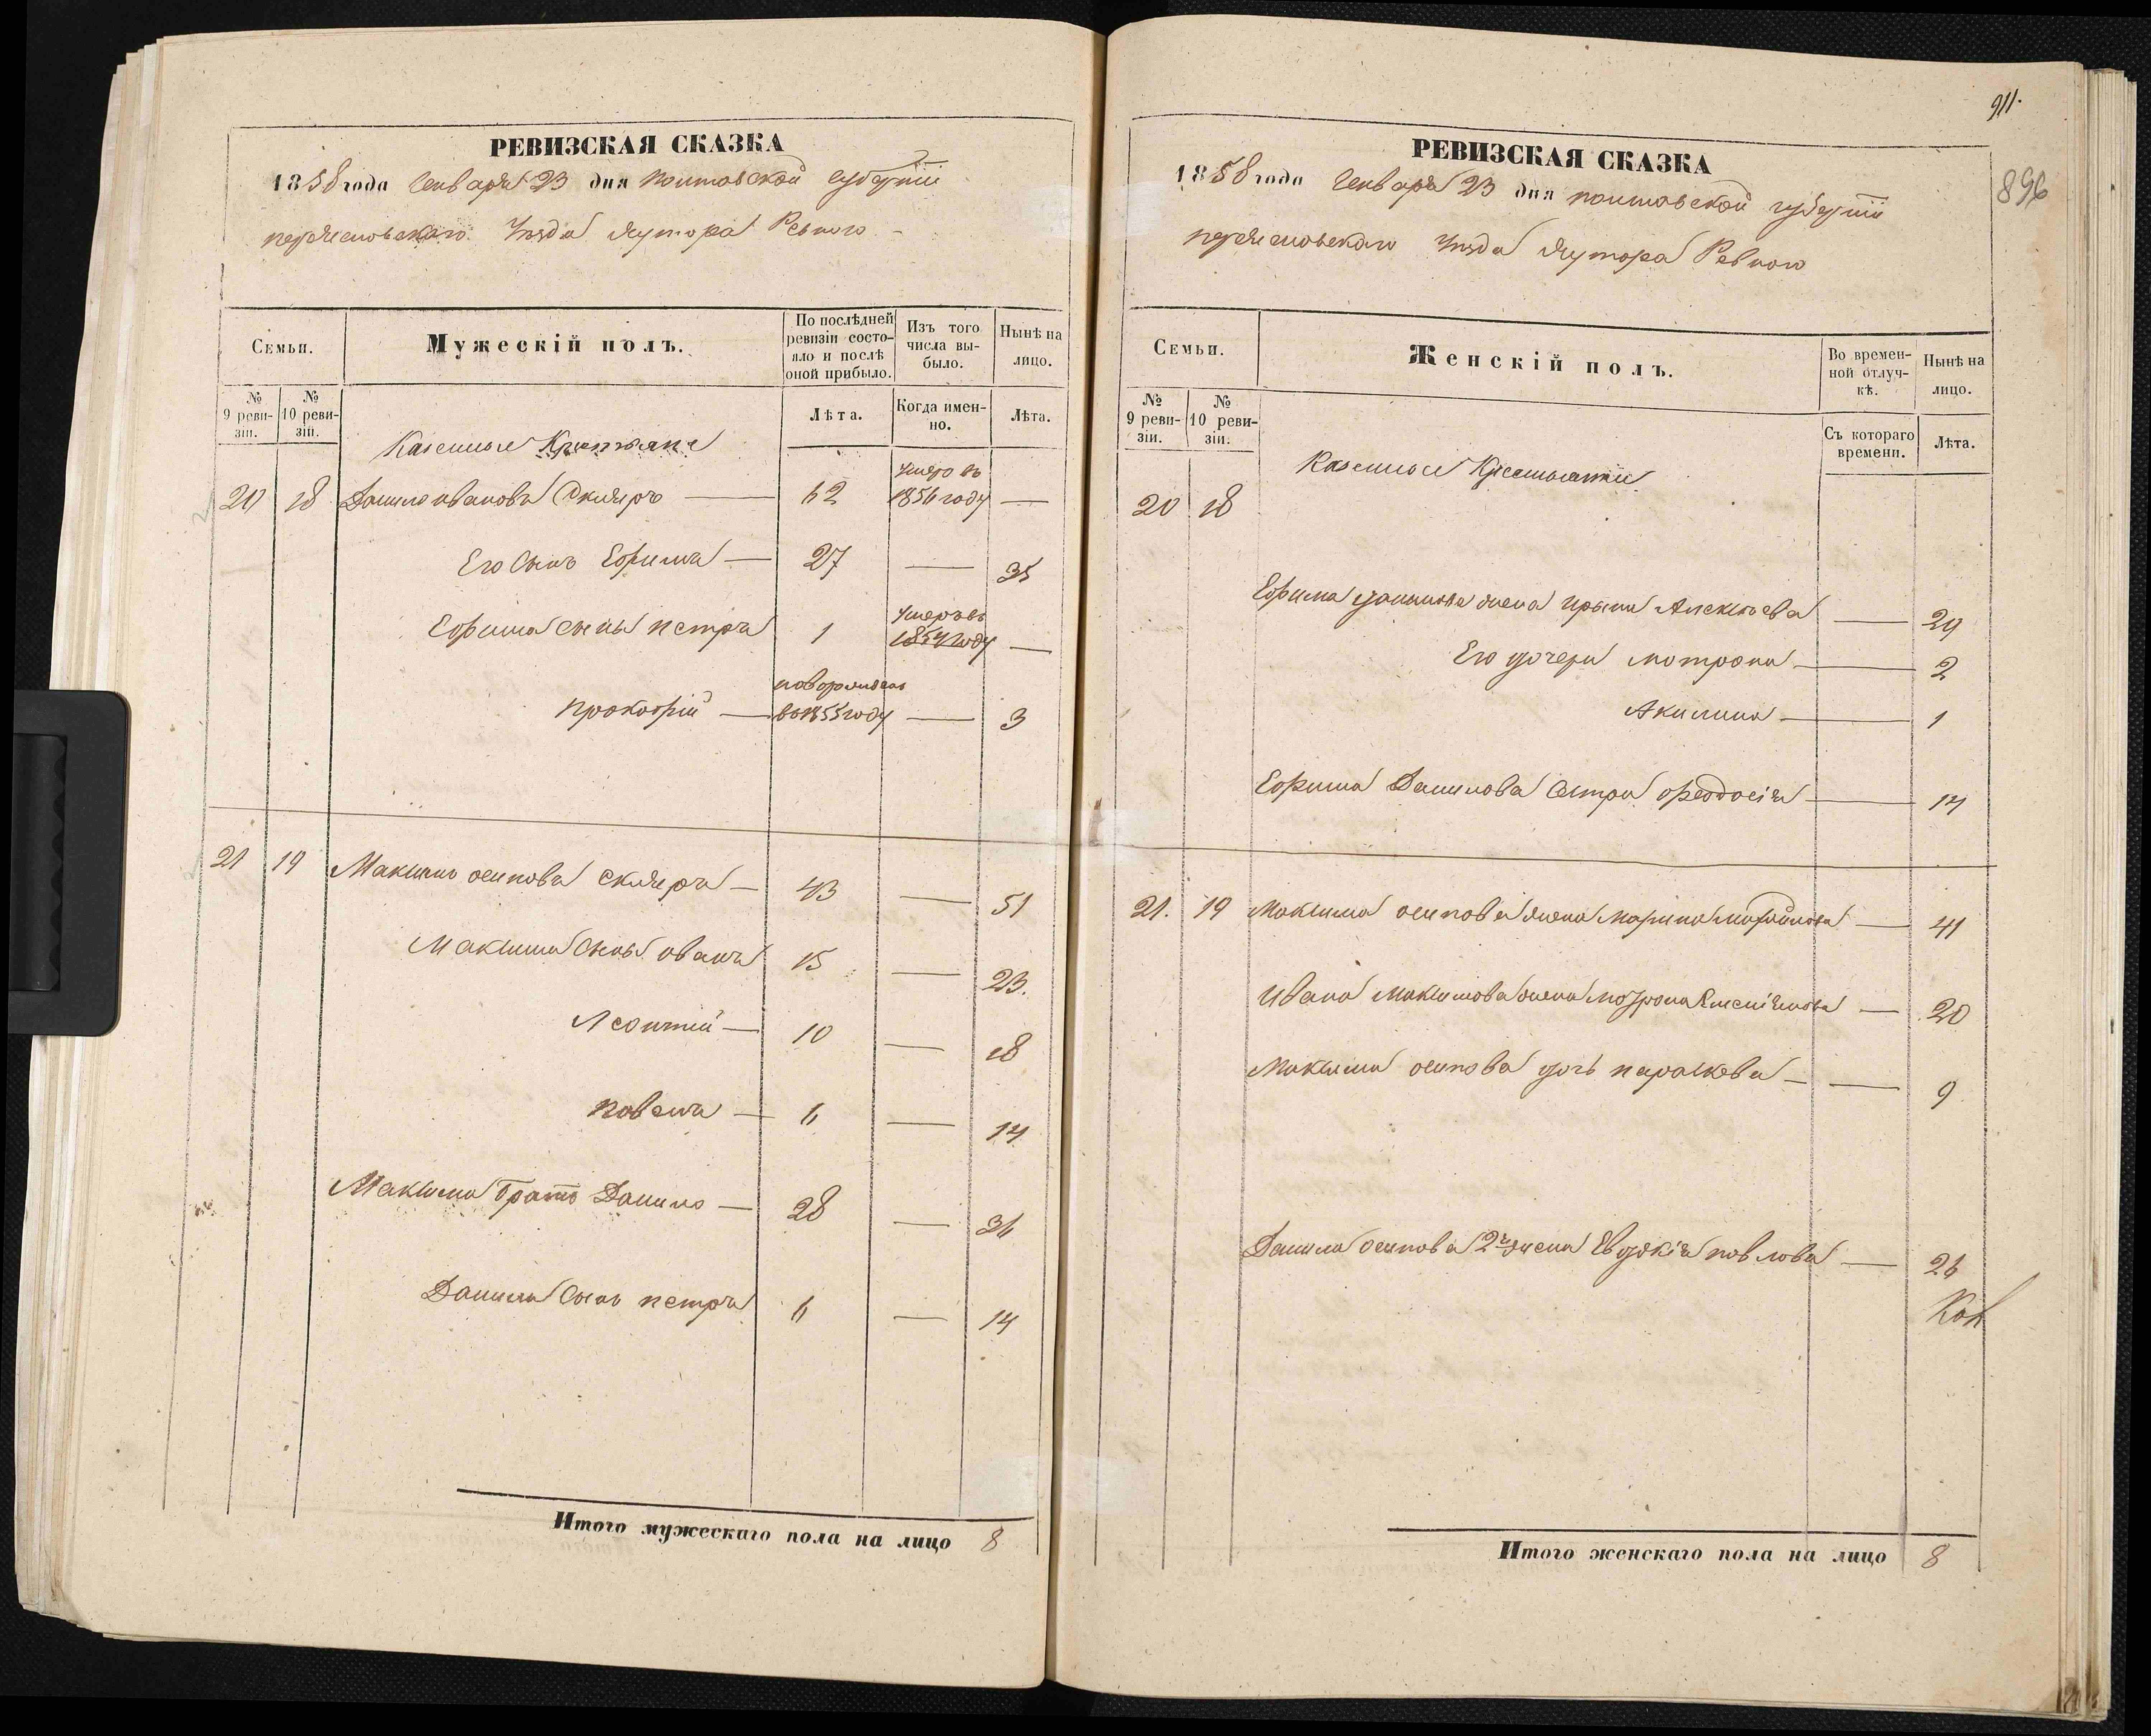 РЕВИЗСКАЯ СКАЗКА
1858 года Генваря 23 дня Полтавской губернiи
переяславскаго Уезда хутора Ревного
Семьи.
Мужескiй полъ.
По послѣдней ревизiи состояло и послѣ оной прибыло.
Изъ того числа выбыло.
Нынѣ на лицо.
№ 9 ревизiи.
№ 10 ревизiи.
Лѣта.
Когда именно.
Лѣта.
Казенные Крестьяне
20 18 Данило ивановъ Скляръ — 62 умеръ въ 1856 году —
Его Сынъ Ефимъ — 27 — 35
Ефима сыны петръ 1 умеръ въ 1854 году —
прокофiй — новорожденъ въ 1855 году — 3
21 19 Максимъ осиповъ скляръ — 43 — 51
Максима Сыны иванъ 15 — 23.
Леонтiй — 10 — 18
павелъ — 6 — 14
Максима братъ Данило — 28 — 36
Данила Сынъ петръ 6 — 14
Итого мужескаго пола на лицо 8
911.
896
РЕВИЗСКАЯ СКАЗКА
1858 года Генваря 23 дня полтавской губернiи
переяславскаго Уезда хутора Ревного
Семьи.
Женскiй полъ.
Во временной отлучкѣ.
Нынѣ на лицо.
№ 9 ревизiи.
№ 10 ревизiи.
Съ котораго времени.
Лѣта.
Казенные
20 18
Ефима данилова жена Ирина Алексѣева — 29
Его дочери мотрона — 2
Акилина — 1
Ефима Данилова сестра феодосiя — 14
21. 19 Максима осипова жена Марина — 41
Ивана Максимова жена мотрона — 20
Максима осипова дочь параскева — — 9
Данила осипова 2я жена Евдокiя павлова — 26
Итого женскаго пола на лицо 8